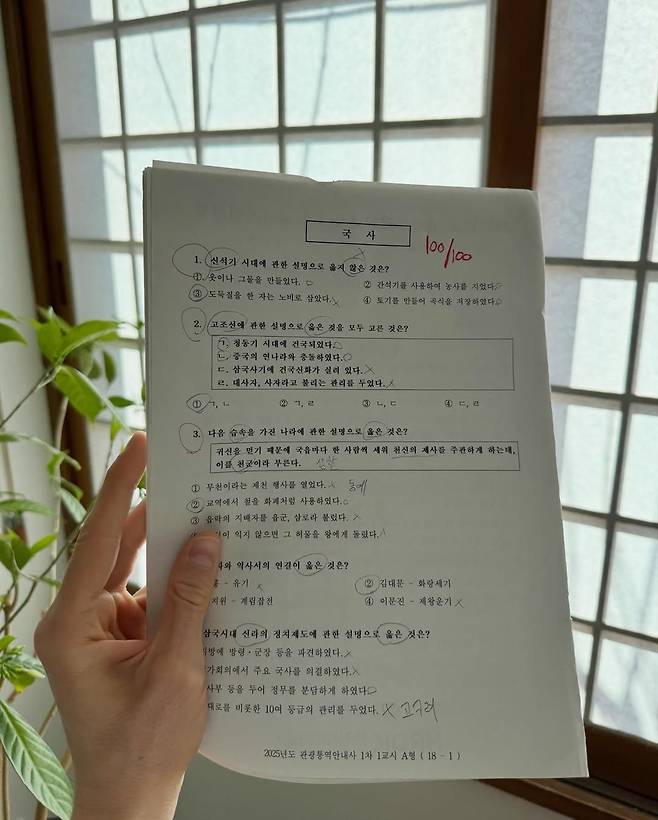 국 사
100/100
1. 신석기 시대에 관한 설명으로 옳지 않은 것은?
① 옷이나 그물을 만들었다. ② 간석기를 사용하여 농사를 지었다.
③ 도둑질을 한 자는 노비로 삼았다. ④ 토기를 만들어 곡식을 저장하였다.
2. 고조선에 관한 설명으로 옳은 것을 모두 고른 것은?
ㄱ. 청동기 시대에 건국되었다.
ㄴ. 중국의 연나라와 충돌하였다.
ㄷ. 삼국사기에 건국신화가 실려 있다.
ㄹ. 대사자, 사자라고 불리는 관리를 두었다.
① ㄱ, ㄴ ② ㄱ, ㄹ ③ ㄴ, ㄷ ④ ㄷ, ㄹ
3. 다음 습속을 가진 나라에 관한 설명으로 옳은 것은?
귀신을 믿기 때문에 국읍마다 한 사람씩 세워 천신의 제사를 주관하게 하는데,
이를 천군이라 부른다. 삼한
① 무천이라는 제천 행사를 열었다. 동예
② 교역에서 철을 화폐처럼 사용하였다.
③ 읍락의 지배자를 읍군, 삼로라 불렀다.
이 익지 않으면 그 허물을 왕에게 돌렸다.
와 역사서의 연결이 옳은 것은?
- 유기 ② 김대문 - 화랑세기
치원 - 계림잡전 ④ 이문진 - 제왕운기
삼국시대 신라의 정치제도에 관한 설명으로 옳은 것은?
방에 방령·군장 등을 파견하였다.
가회의에서 주요 국사를 의결하였다.
사부 등을 두어 정무를 분담하게 하였다.
대로를 비롯한 10여 등급의 관리를 두었다. 고구려
2025년도 관광통역안내사 1차 1교시 A형 ( 18 - 1 )